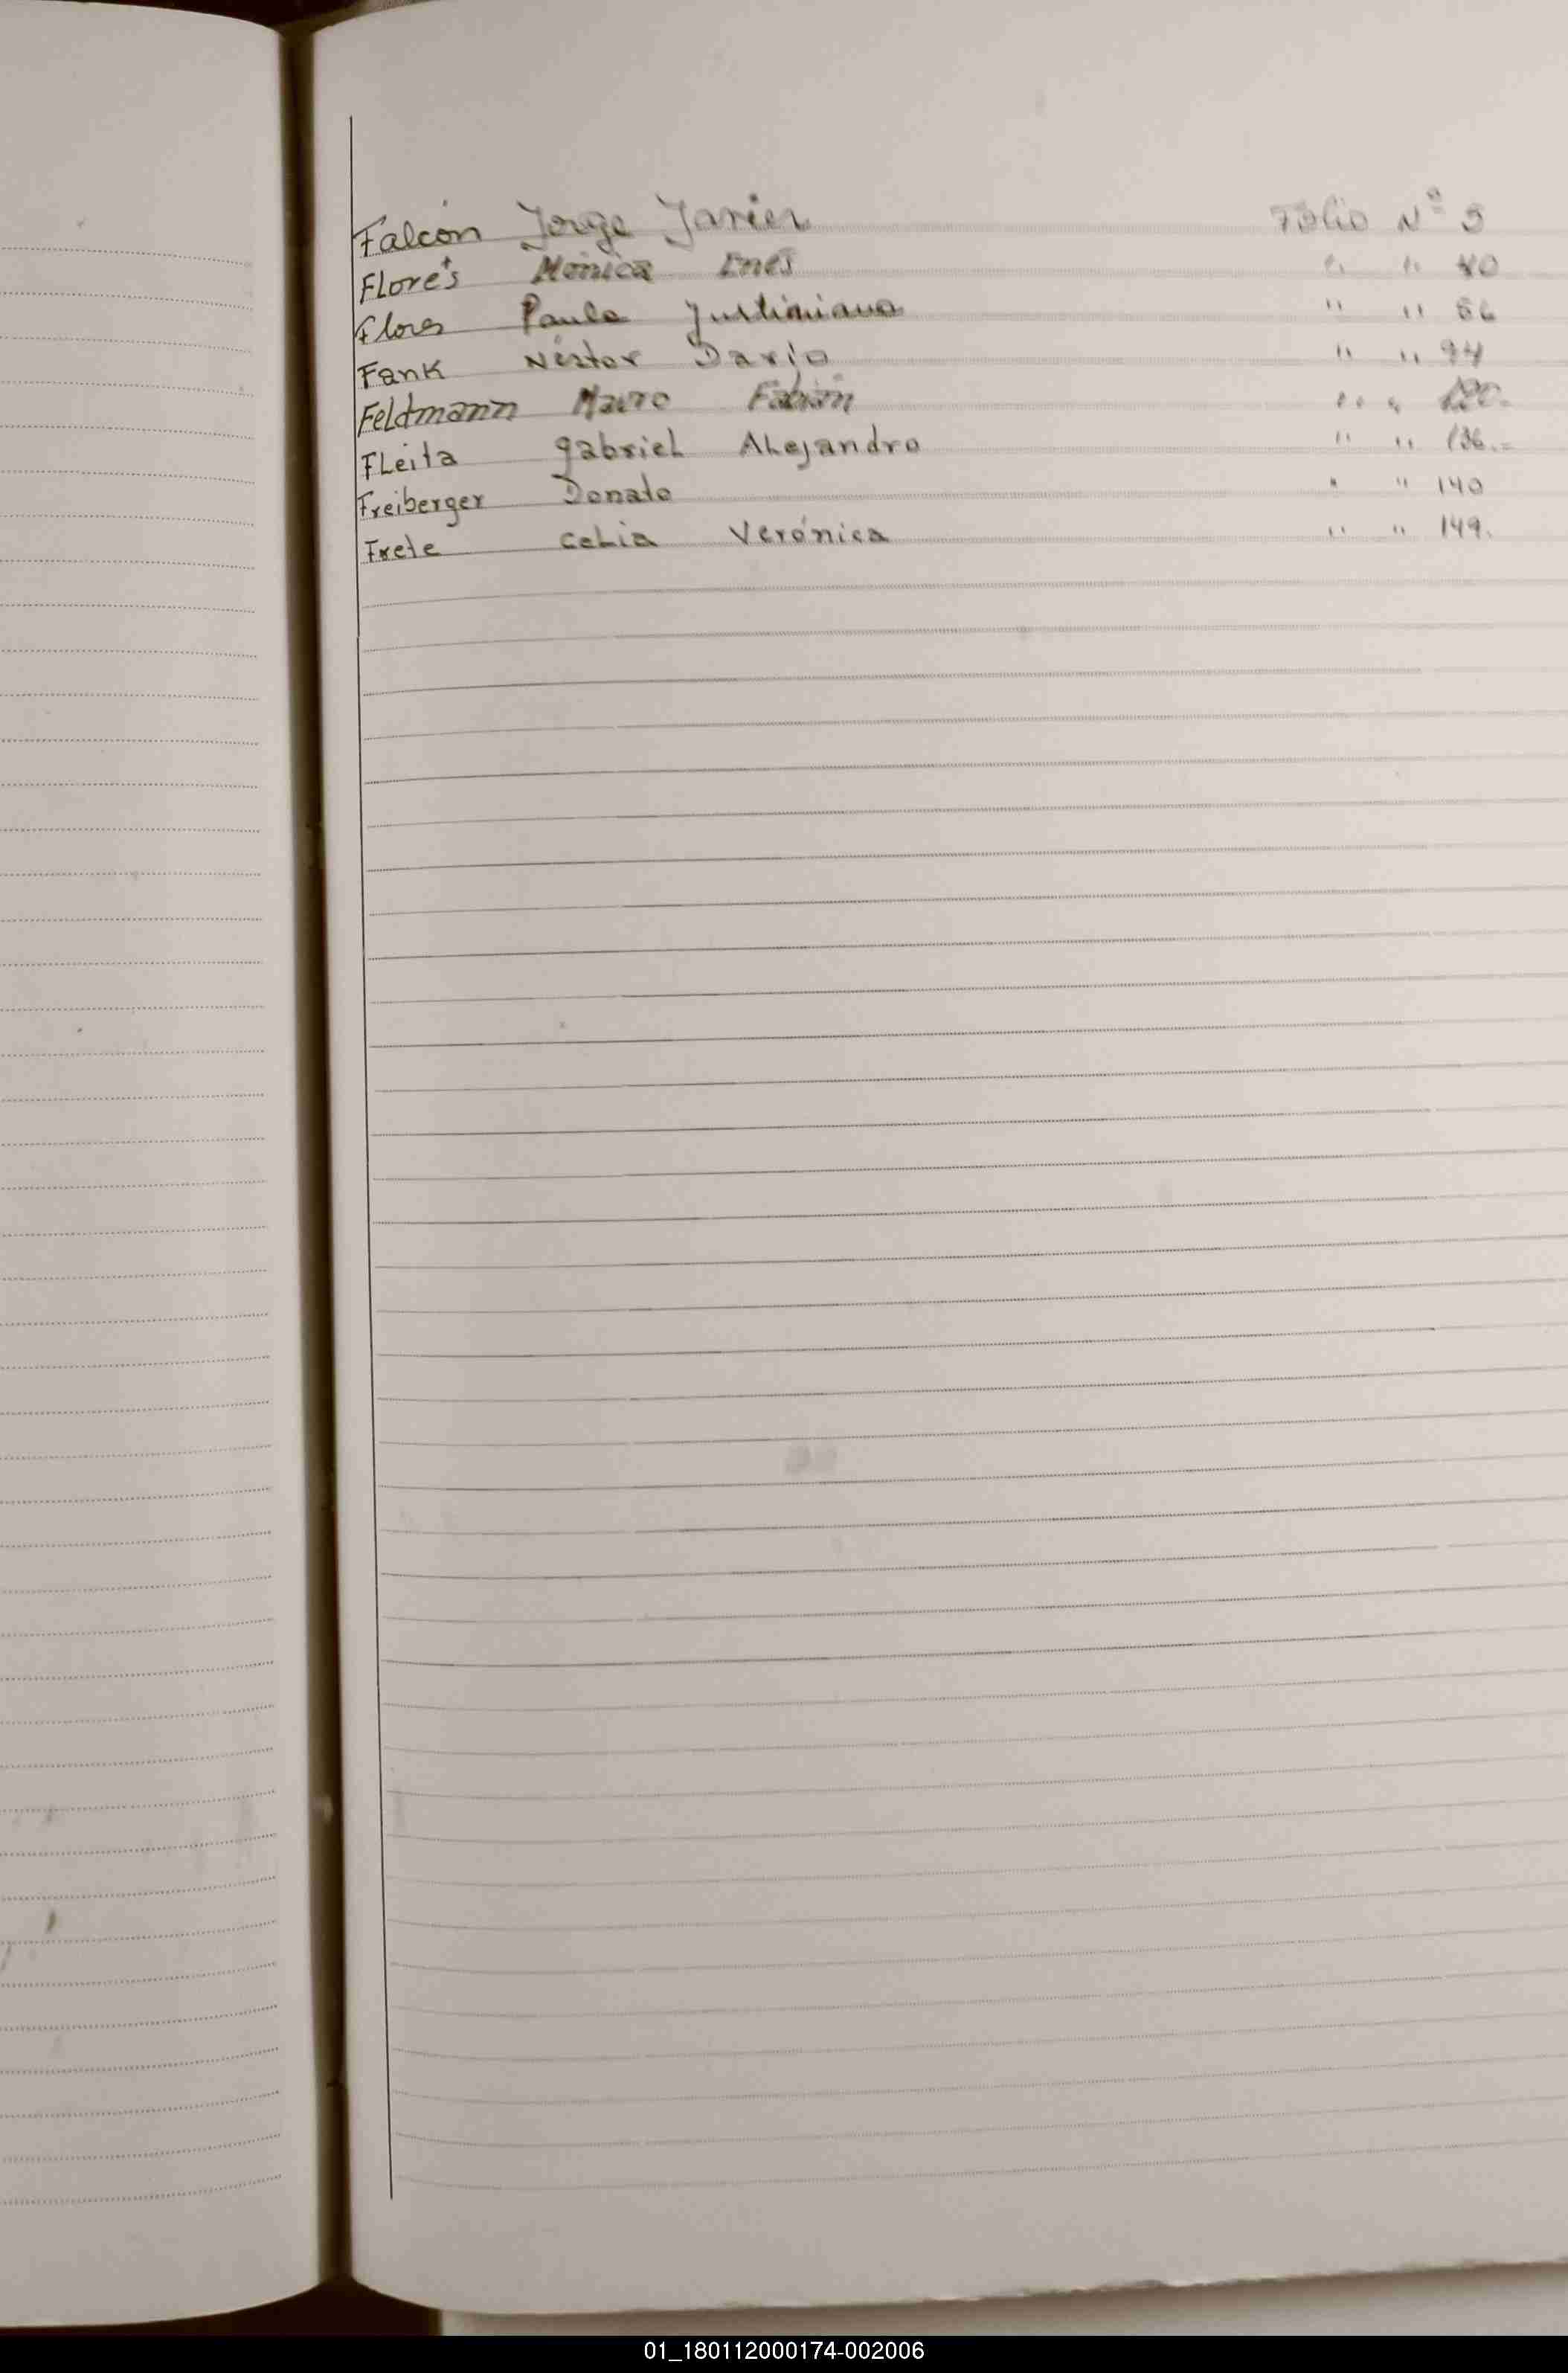 Falcón Jorge Javier Folio Nº 3
Flores Mónica Enes " " 40
Flores Paula Justiniano " " 56
Fank Néstor Darío " " 94
Feldmann Mauro Fabián " " 120.
FLeita gabrieL ALejandro " " 136.=
Freiberger Donato " " 140
Frete ceLia Verónica " " 149.
01_180112000174-002006